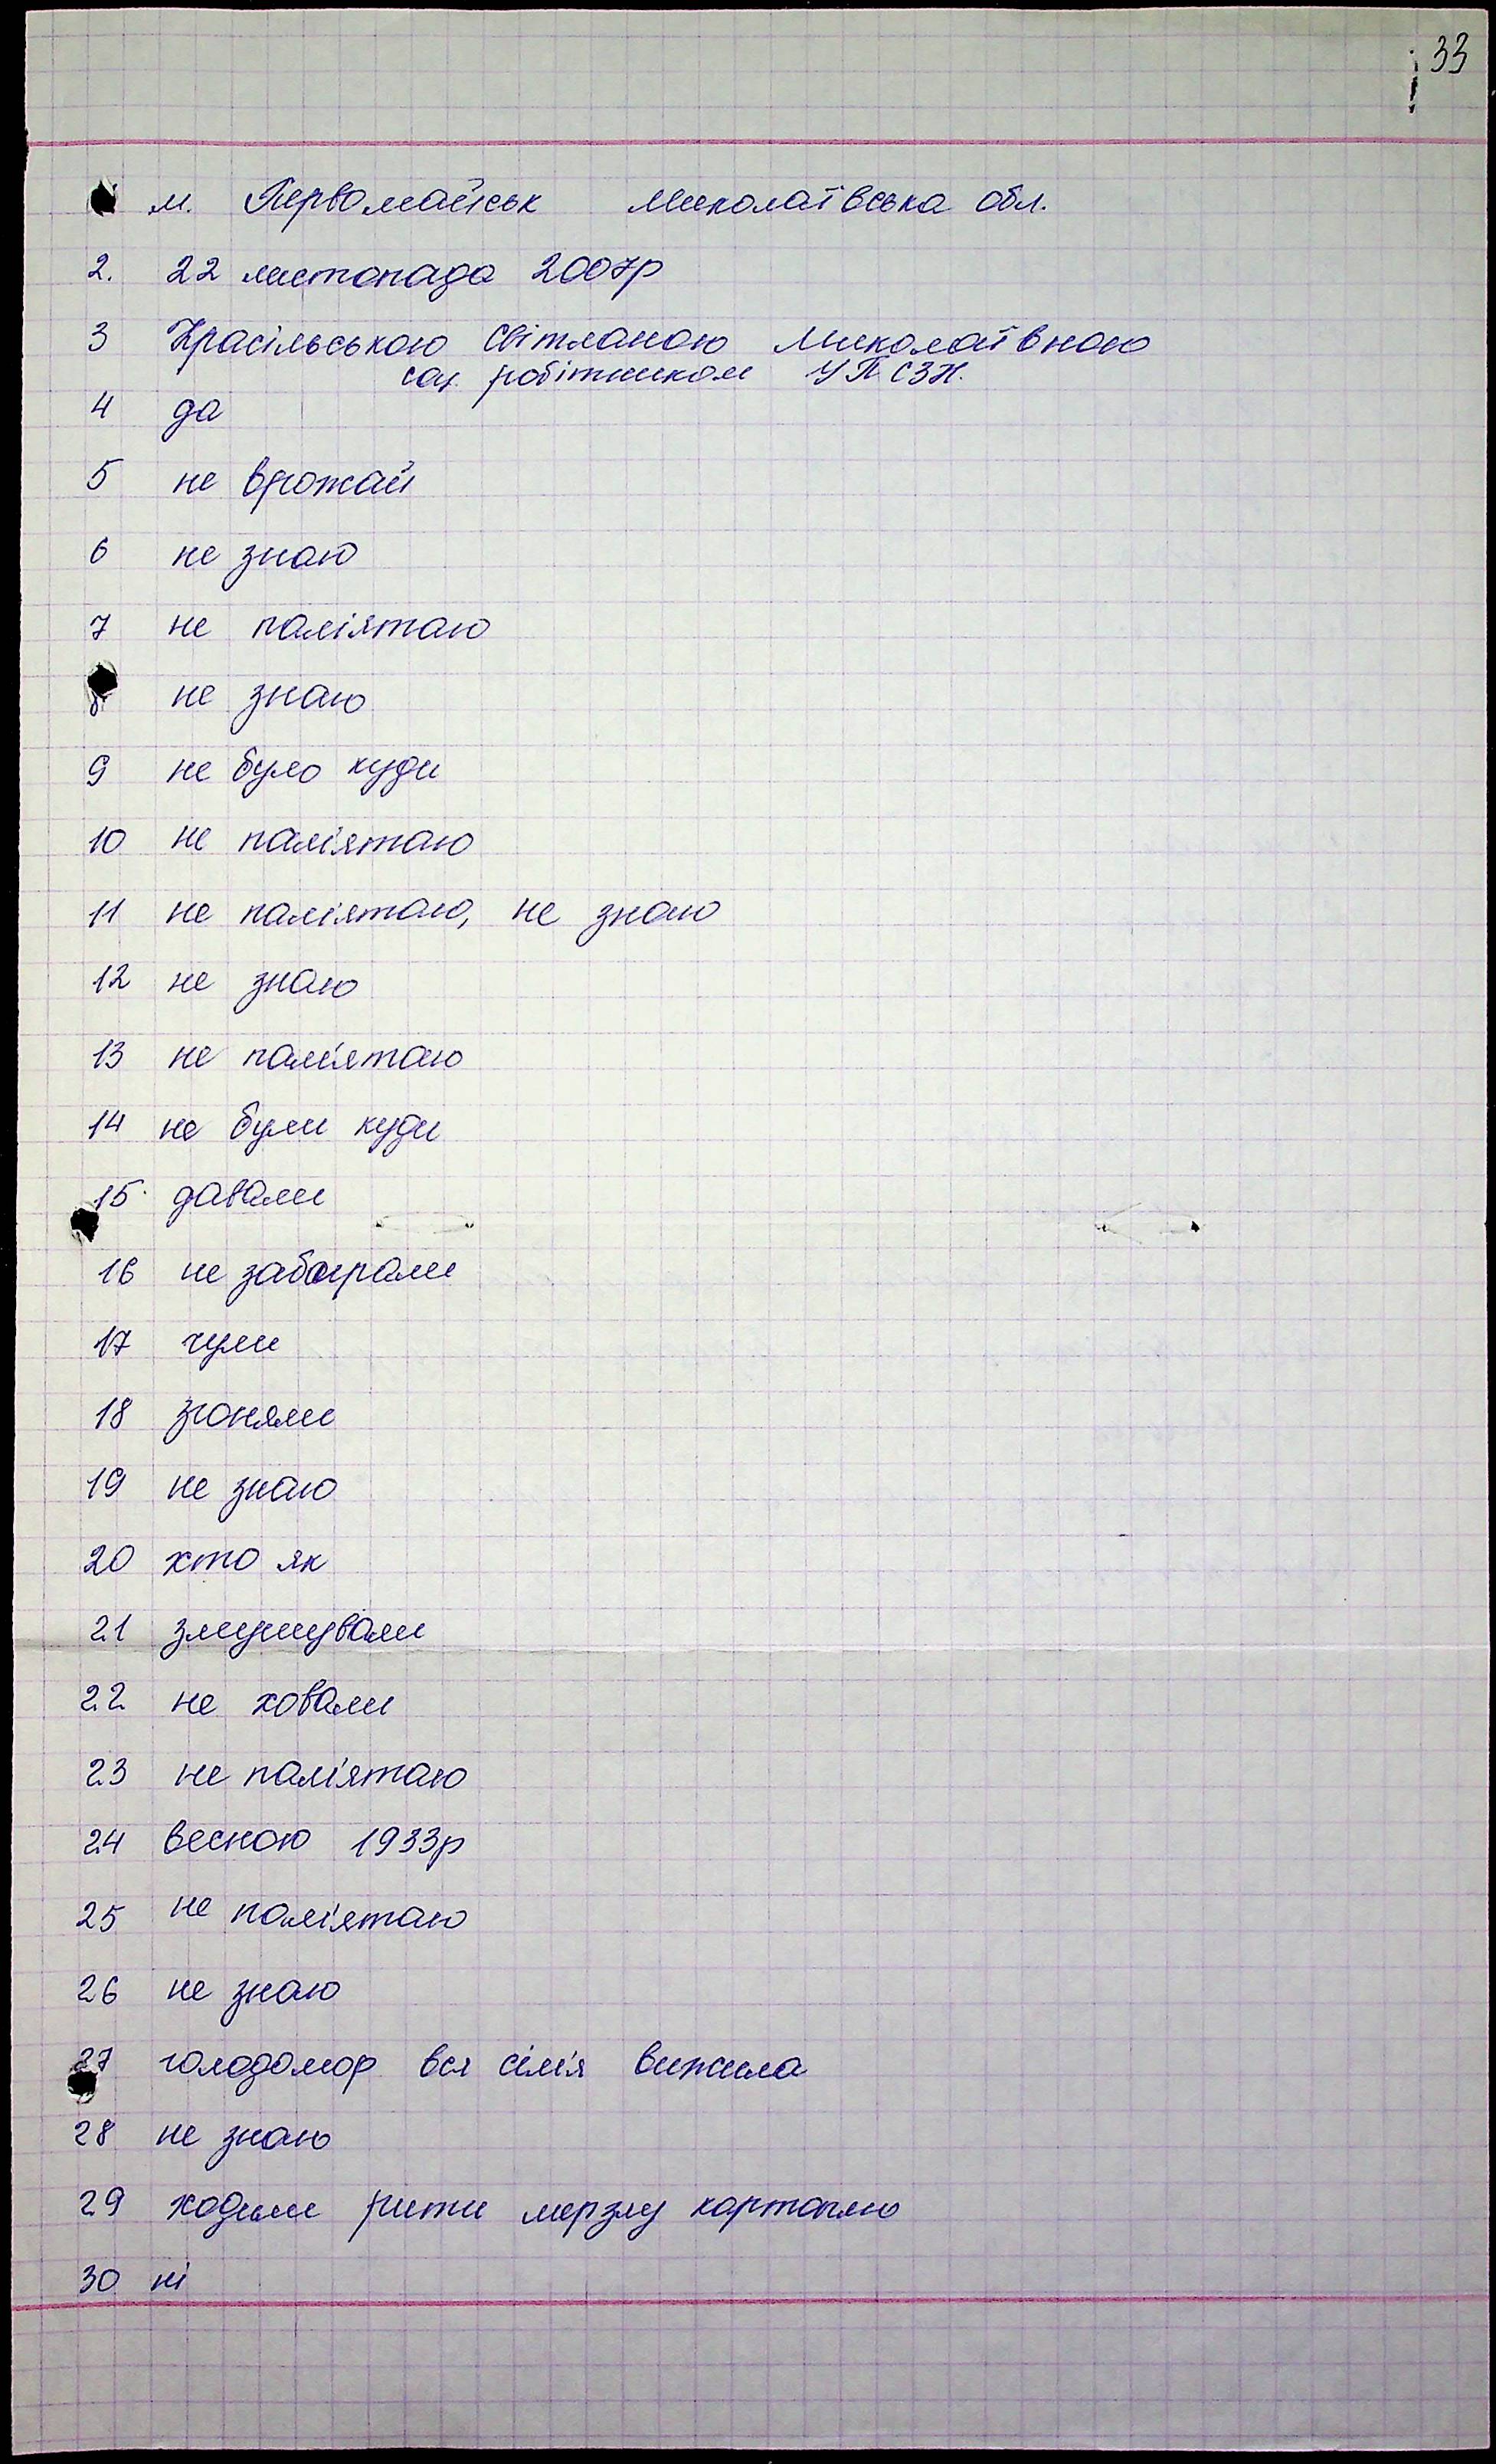 33
м. Первомайськ Миколаївська обл.
2. 22 листопада 2007р
3 Красільською Світланою Миколаївною
соц. робітником УПСЗН.
4 да
5 не врожай
6 не знаю
7 не паміятаю
8 не знаю
9 не було куди
10 не пам'ятаю
11 не пам'ятаю, не знаю
12 не знаю
13 не пам'ятаю
14 не були куди
15. давали
16 не забирали
17 чули
18 зганяли
19 не знаю
20 хто як
21 змушували
22 не ховали
23 не пам'ятаю
24 весною 1933р
25 не пам'ятаю
26 не знаю
27 голодомор вся сім'я вижила
28 не знаю
29 ходили рити мерзлу картоплю
30 ні